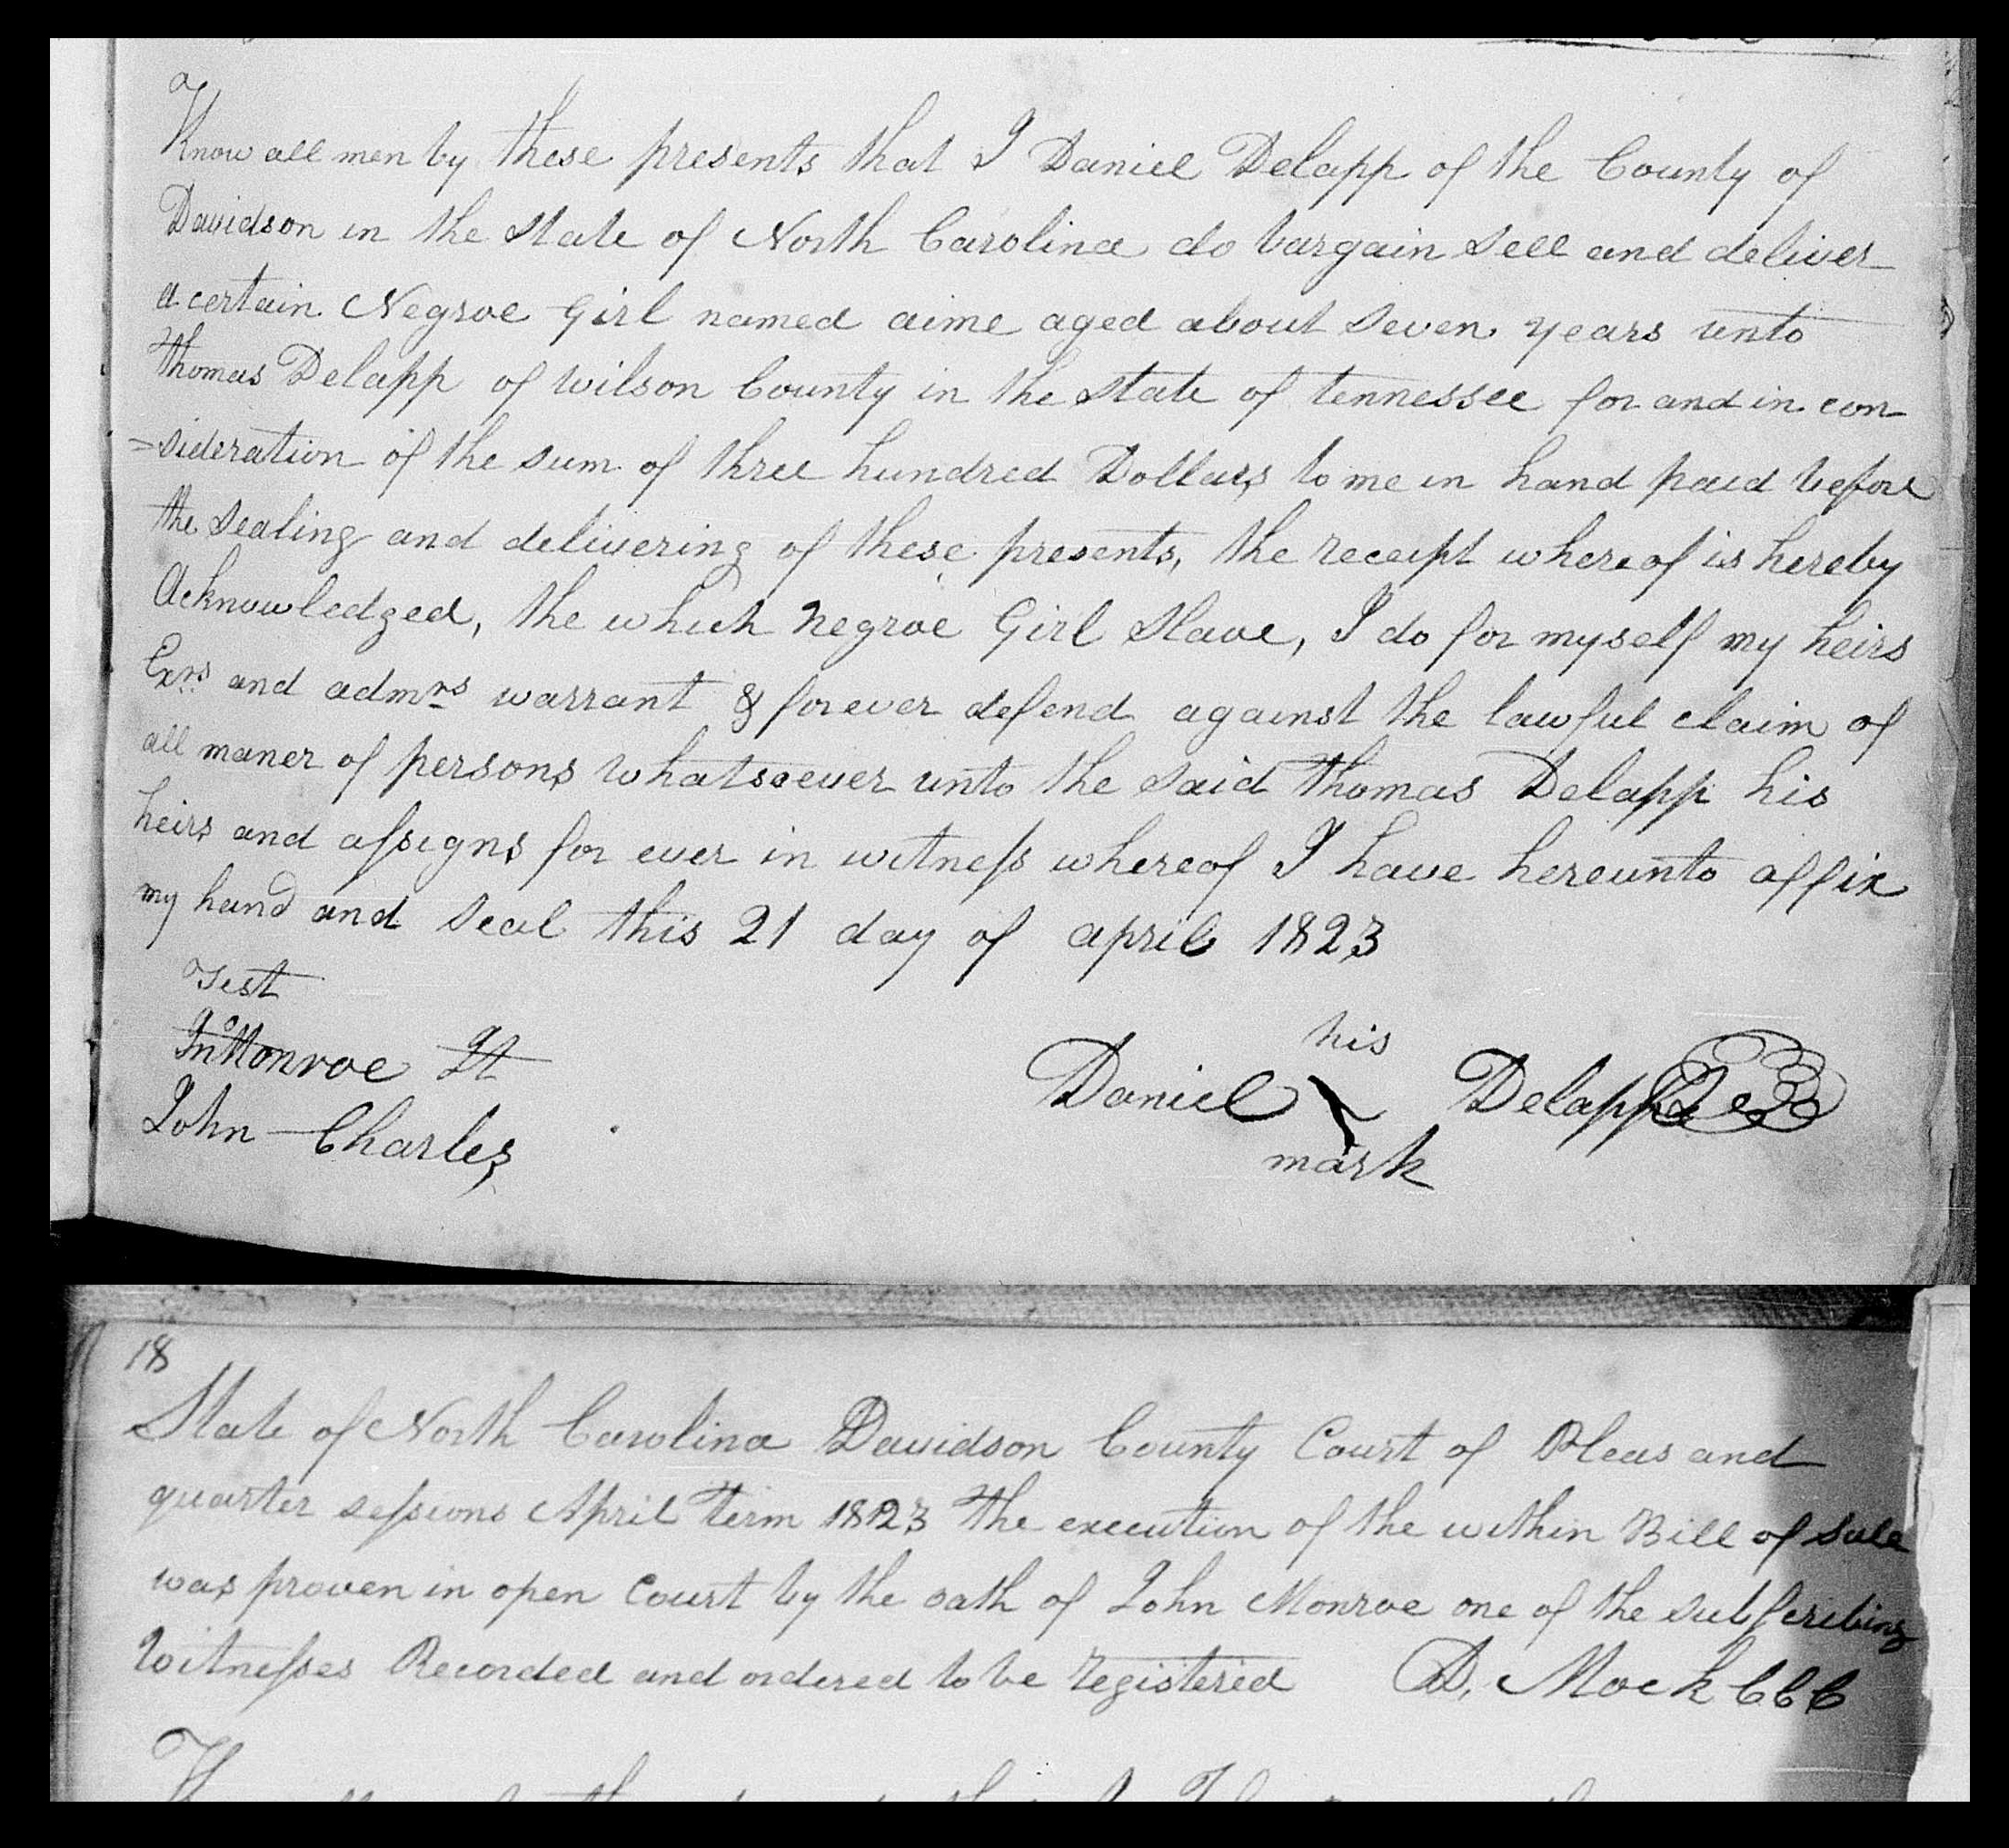 Know all men by these presents that I Daniel Delapp of the County of
Davidson in the State of North Carolina do bargain Sell and deliver
a certain Negroe Girl named aime aged about Seven years unto
Thomas Delapp of Wilson County in the State of tennessee for and in con
=sideration of the sum of three hundred Dollars to me in hand paid before
the Sealing and delivering of these presents, the receipt whereof is hereby
Acknowledged, the which Negroe Girl Slave, I do for myself my heirs
Exrs and admrs warrant & forever defend against the lawful claim of
all maner of persons whatsoever unto the said Thomas Delapp his
heirs and assigns for ever in witness whereof I have hereunto affix
my hand and Seal this 21 day of april 1823
Test
Jno Monroe Jt
John Charles
his
Daniel Delapp
mark
18
State of North Carolina Davidson County Court of Pleas and
quarter sessions April Term 1823 The execution of the within Bill of Sale
was proven in open Court by the oath of John Monroe one of the subscribing
Witnesses Recorded and ordered to be registered D. Mock CCC